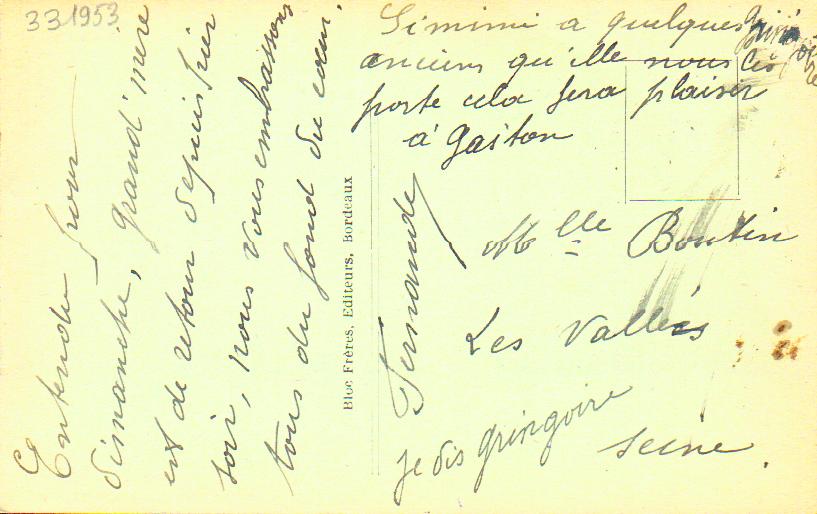 331953
Entendu pour
dimanche, grand'mère
est de retour depuis hier
soir, nous vous embrassons
tous du fond du cœur.
Fernande
Bloc Frères, Editeurs, Bordeaux
Si mimi a quelques
anciens qu'elle nous les
porte cela fera plaisir
à Gaston
Mlle Boutin
Les Vallées
Seine.
je dis gringoire